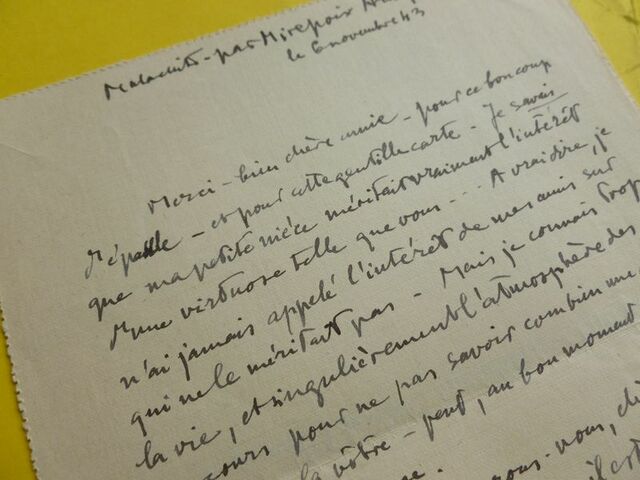 Maladrits - par Mirepoix
le 6 novembre 43
Merci - bien chère amie - pour ce bon coup
d'épaule - et pour cette gentille carte - Je savais
que ma petite nièce méritait vraiment l'intérêt
d'une virtuose telle que vous... A vrai dire, je
n'ai jamais appelé l'intérêt de mes amis sur
qui ne le méritait pas - Mais je connais trop
la vie, et singulièrement l'atmosphère des
cours pour ne pas savoir combien une
la vôtre - peut, au bon moment
vous
il est